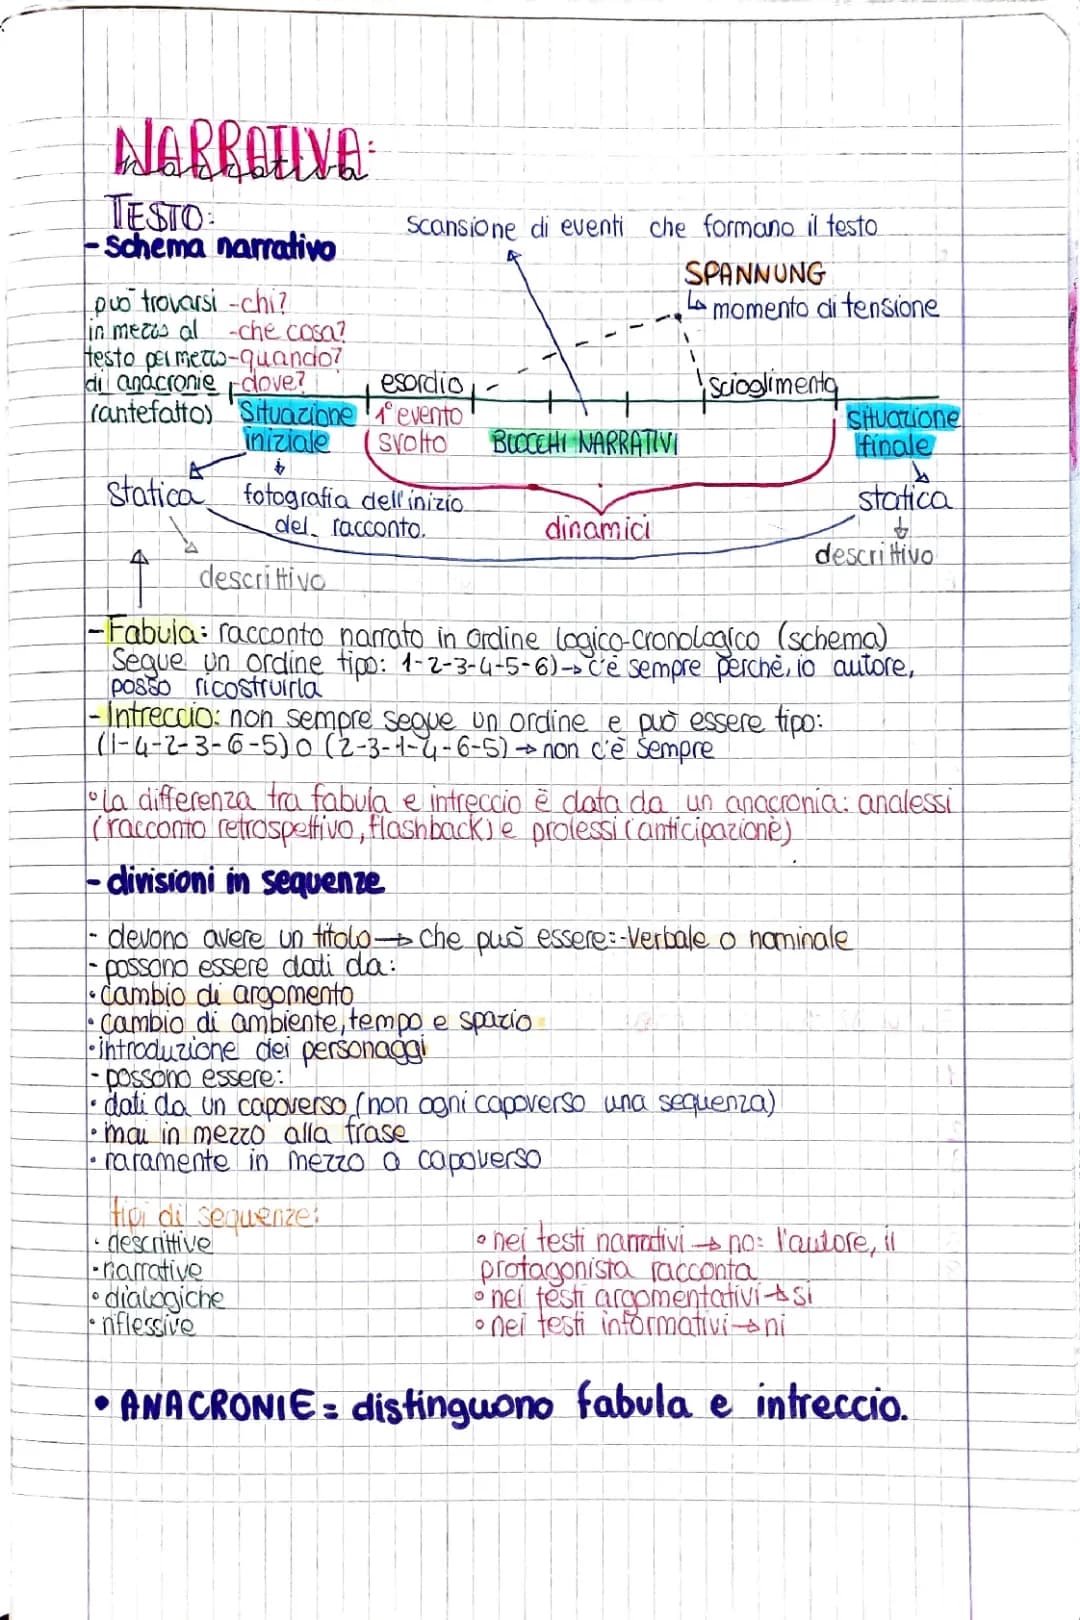 NARRATIVA:
narrativa
TESTO:
- Schema narrativo
scansione di eventi che formano il testo
SPANNUNG
↳ momento di tensione
può trovarsi
in mezzo al
testo per mezzo
di anacronie
(antefatto)
- chi?
- che cosa?
- quando?
- dove?
Situazione
iniziale
esordio
1° evento
svolto
BLOCCHI NARRATIVI
scioglimento
situazione
finale
statica
fotografia dell'inizio
del racconto.
dinamici
statica
descrittivo
descrittivo
- Fabula: racconto narrato in ordine logico-cronologico (schema)
Segue un ordine tipo: 1-2-3-4-5-6) → c'è sempre perchè, io autore,
posso ricostruirla
- Intreccio: non sempre segue un ordine e può essere tipo:
(1-4-2-3-6-5) o (2-3-1-4-6-5) → non c'è sempre
• la differenza tra fabula e intreccio è data da un anacronia: analessi
(racconto retrospettivo, flashback) e prolessi (anticipazione)
- divisioni in sequenze
- devono avere un titolo → che può essere: - Verbale o nominale
- possono essere dati da:
• cambio di argomento
• cambio di ambiente, tempo e spazio
• introduzione dei personaggi
- possono essere:
• dati da un capoverso (non ogni capoverso una sequenza)
• mai in mezzo alla frase
• raramente in mezzo a capoverso
tipi di sequenze:
• descrittive
• narrative
• dialogiche
• riflessive
• nei testi narrativi → no: l'autore, il
protagonista racconta
• nei testi argomentativi → si
• nei testi informativi → ni
• ANACRONIE = distinguono fabula e intreccio.